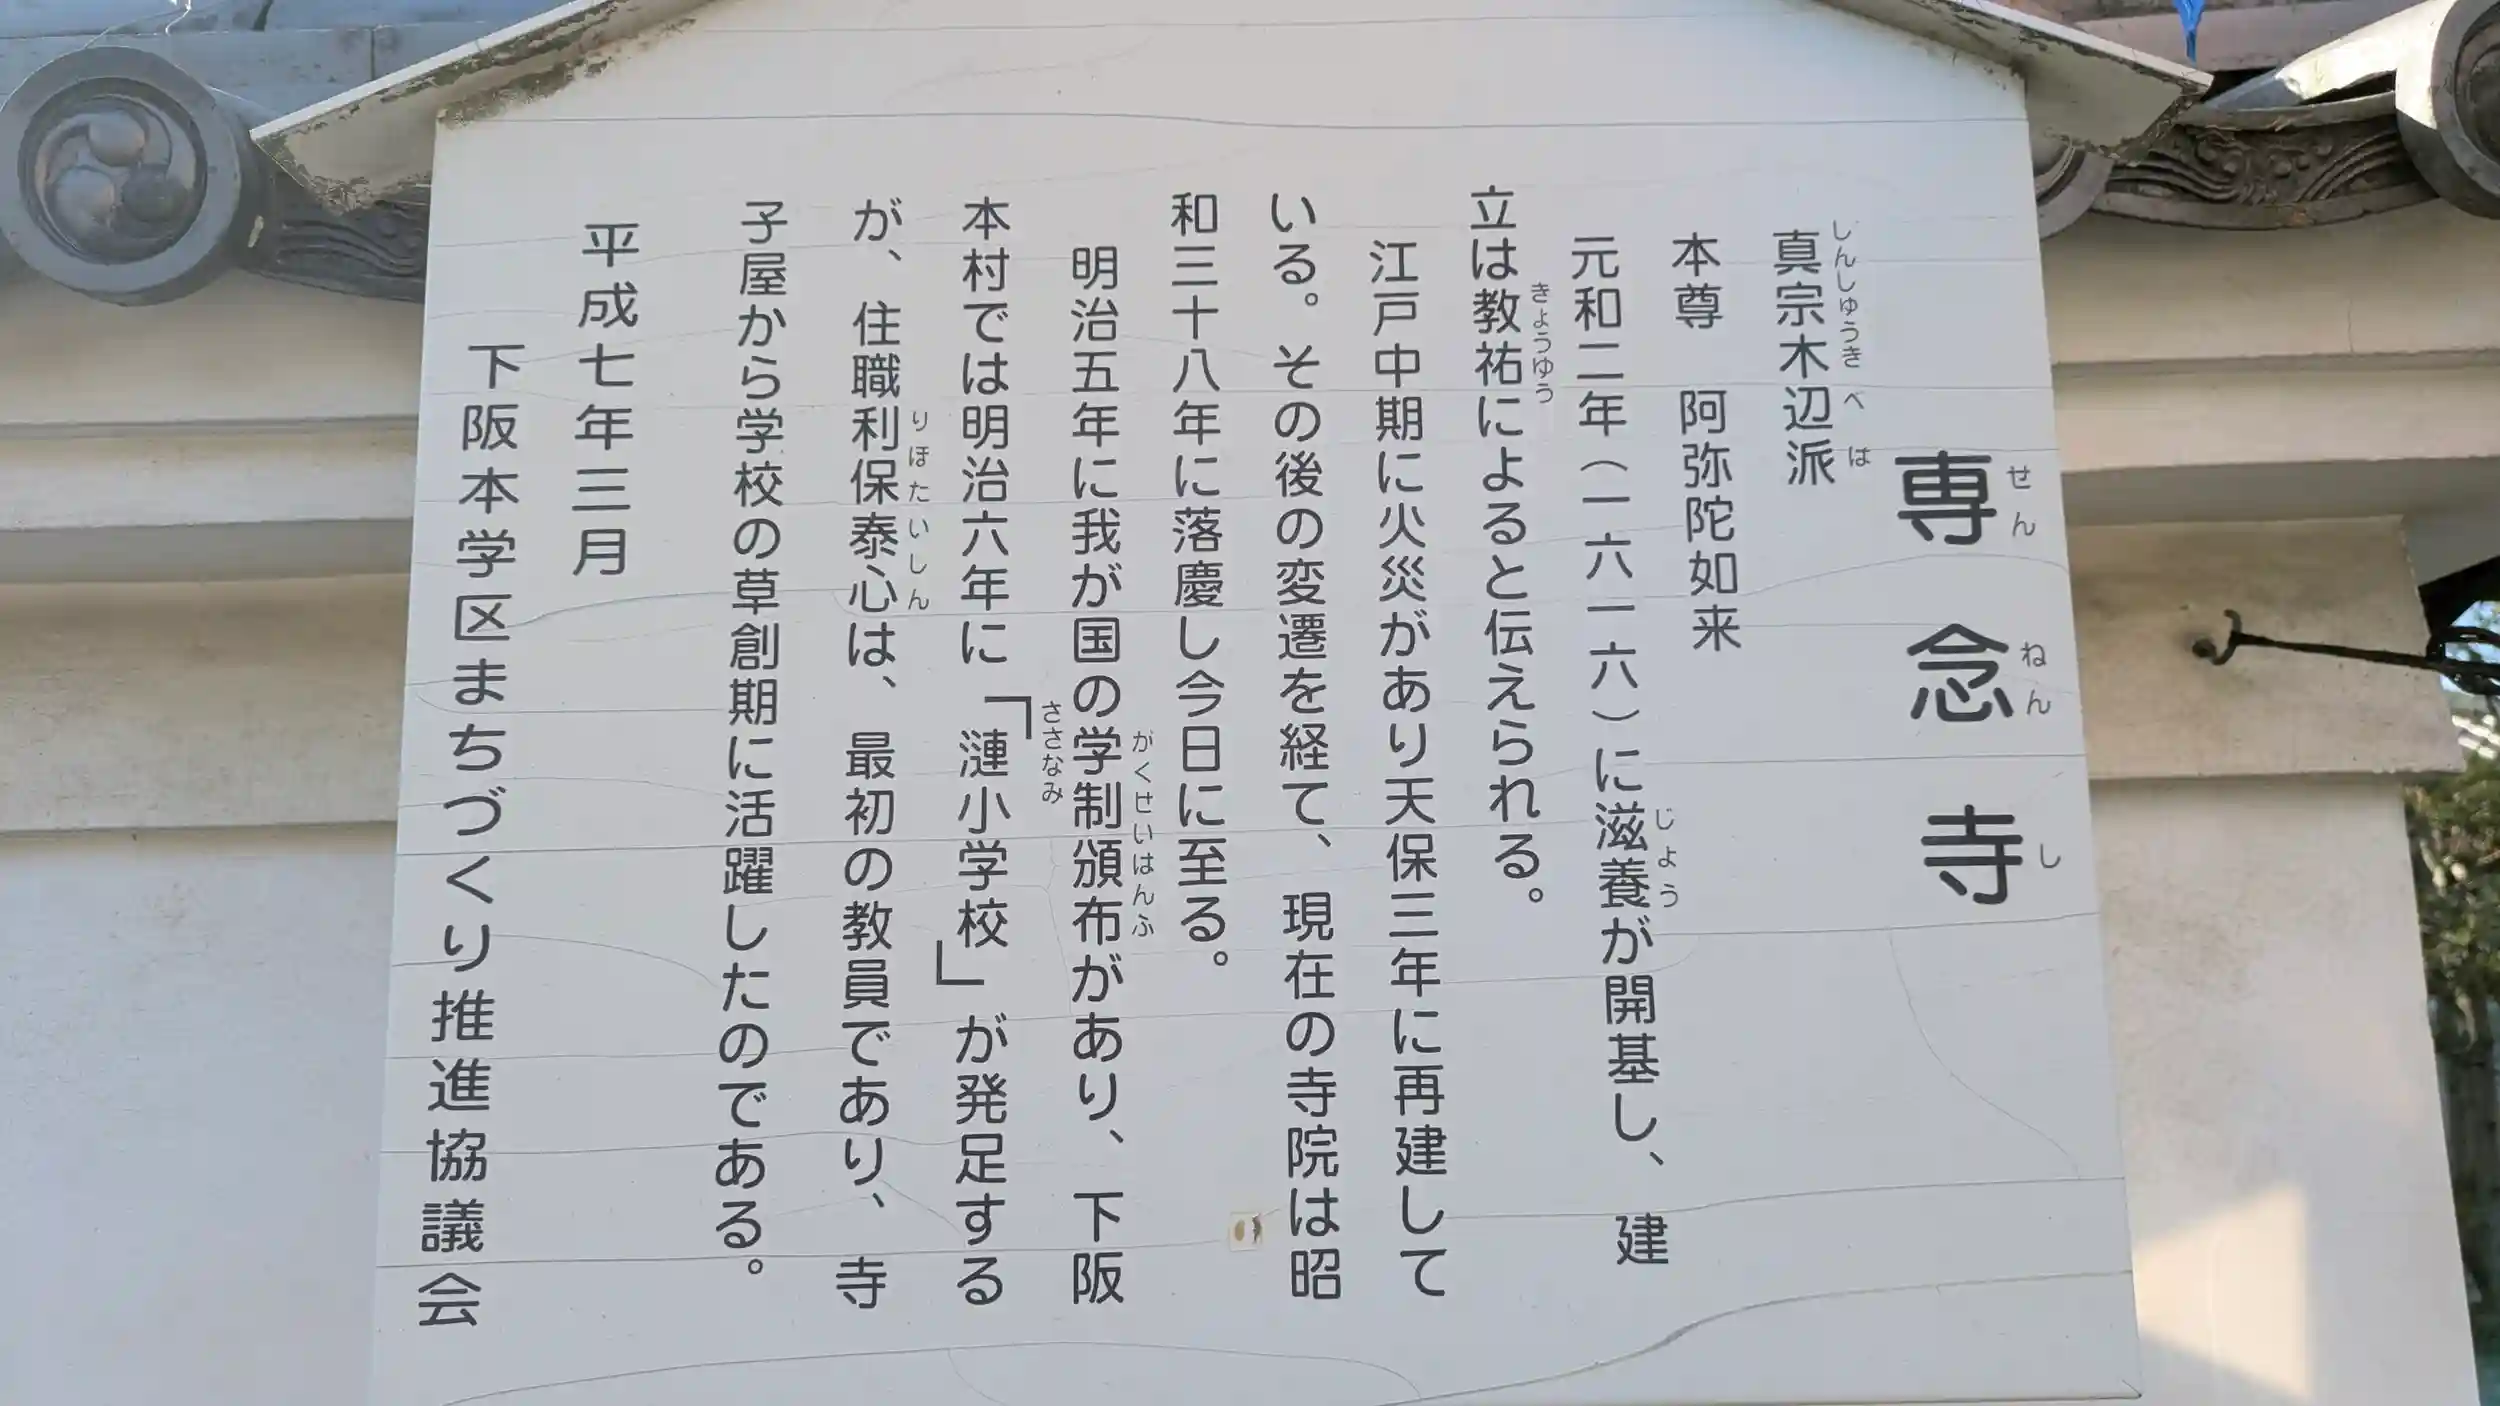 専念寺
せんねんし
真宗木辺派
しんしゅうきべは
本尊　阿弥陀如来
元和二年（一六一六）に滋養が開基し、建
じよう
立は教祐によると伝えられる。
きょうゆう
江戸中期に火災があり天保三年に再建して
いる。その後の変遷を経て、現在の寺院は昭
和三十八年に落慶し今日に至る。
明治五年に我が国の学制頒布があり、下阪
がくせいはんふ
本村では明治六年に「漣小学校」が発足する
ささなみ
が、住職利保泰心は、最初の教員であり、寺
りほたいしん
子屋から学校の草創期に活躍したのである。
平成七年三月
下阪本学区まちづくり推進協議会